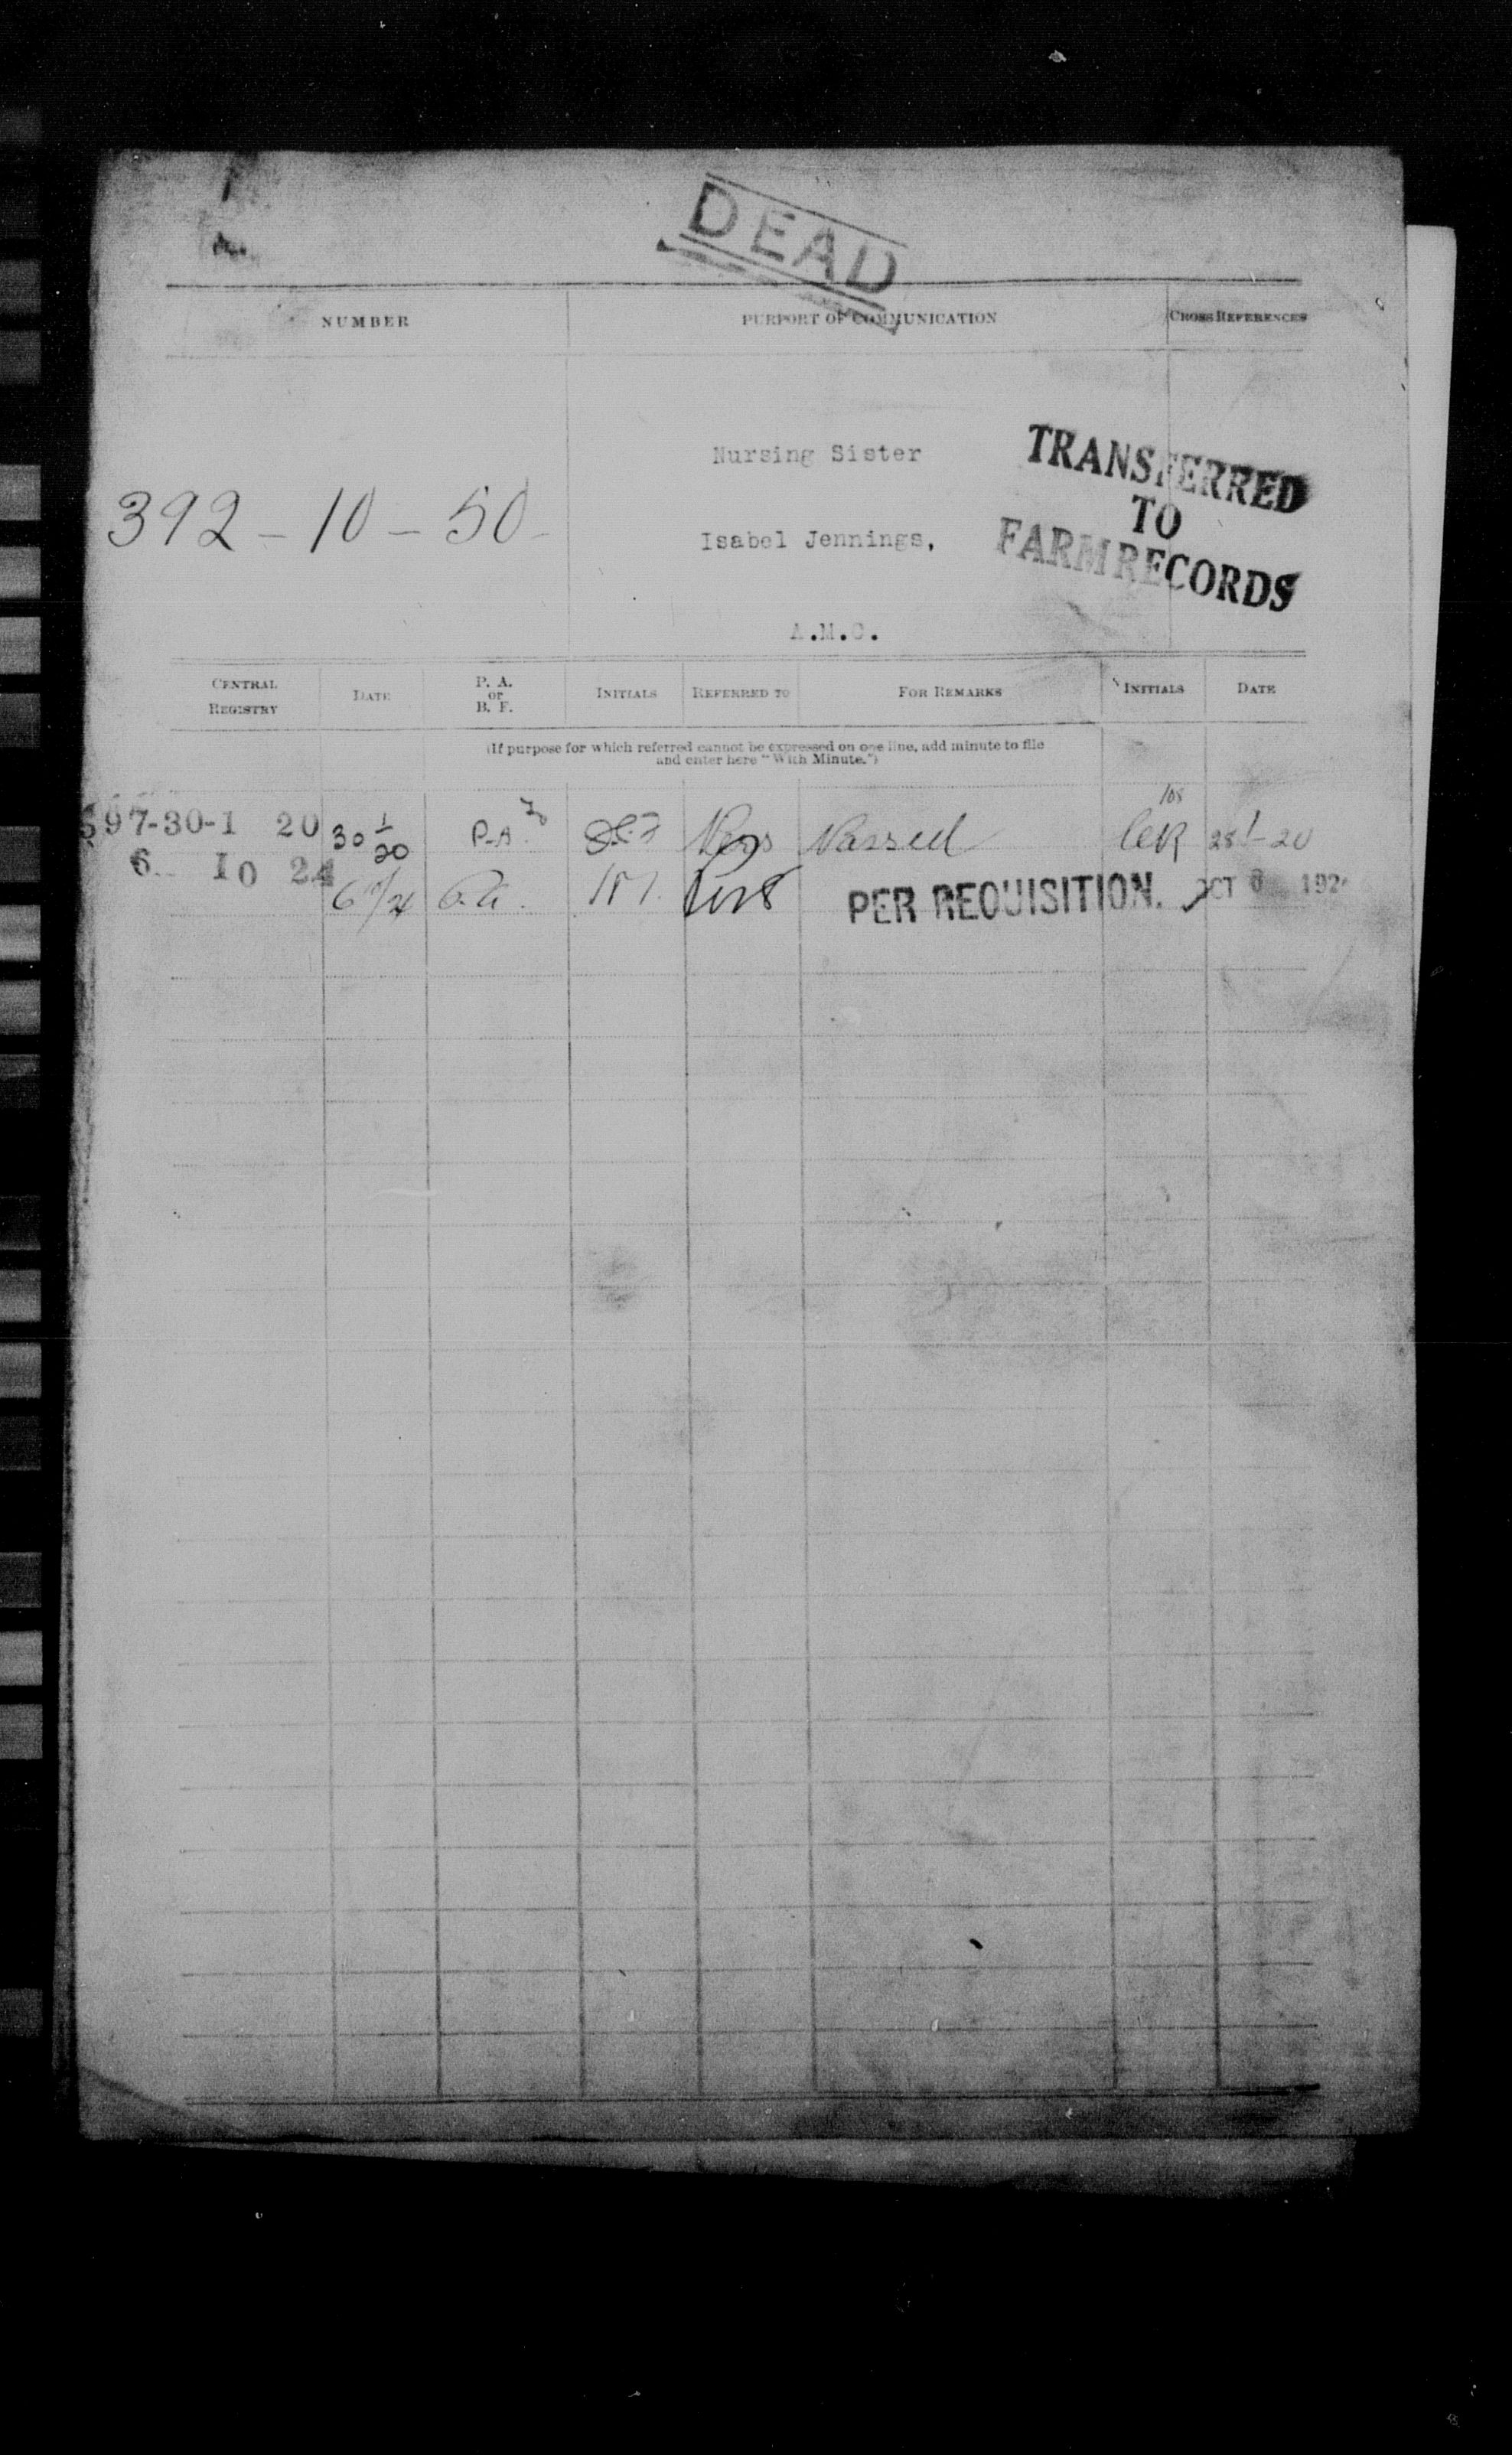 DEAD
NUMBER PURPORT OF COMMUNICATION CROSS REFERENCES
392-10-50-
Nursing Sister
Isabel Jennings,
A.M.C.
TRANSFERRED
TO
FARM RECORDS
CENTRAL REGISTRY DATE P. A. or B. F. INITIALS REFERRED TO FOR REMARKS INITIALS DATE
(If purpose for which referred cannot be expressed on one line, add minute to file
and enter here "With Minute.")
597-30-1 20 30 1/20 P.A. 28-1-20
6 10 24 P.A. PER REQUISITION. OCT 6 192